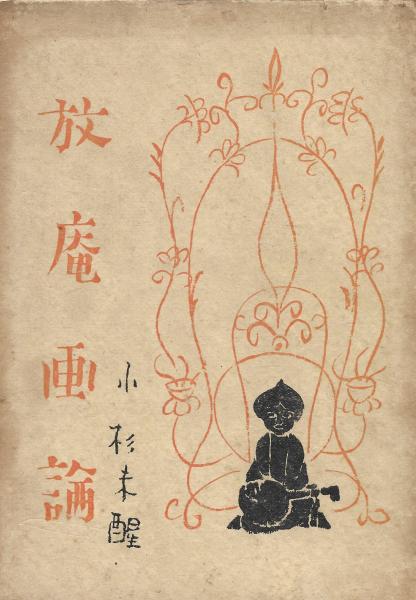 放庵画論
小杉未醒